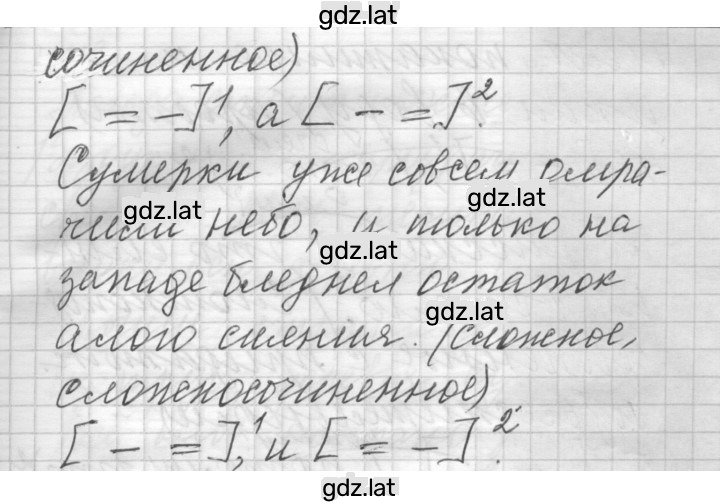 gdz.lat
сочиненное)
[ = - ]¹, а [ - = ]².
Сумерки уже совсем омра-
gdz.lat
gdz.lat
чили небо, и только на
gdz.lat
западе бледнел остаток
gdz.lat
алого сияния. (сложное,
сложносочиненное)
[ - = ],¹ и [ = - ]².
gdz.lat